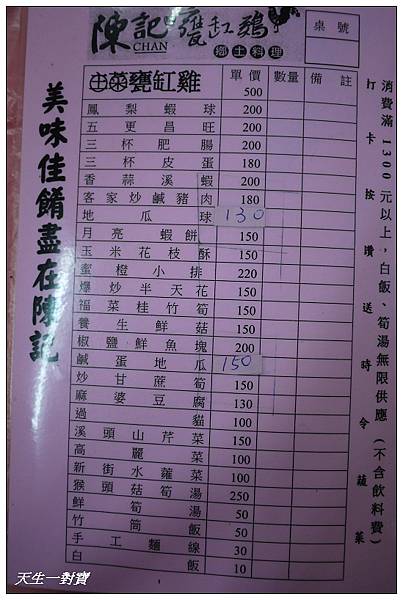 陳記甕缸鷄
CHAN
鄉土料理
桌號
美味佳餚盡在陳記
消費滿1300元以上,白飯、筍湯無限供應(不含飲料費)
打卡按讚送時令蔬菜
甕缸雞 單價 數量 備註
500
鳳梨蝦球 200
五更昌旺 200
三杯肥腸 200
三杯皮蛋 180
香蒜溪蝦 200
客家炒鹹豬肉 180
地瓜球 130
月亮蝦餅 150
玉米花枝酥 150
蜜橙小排 220
爆炒半天花 150
福菜桂竹筍 150
養生鮮菇 150
椒鹽鮮魚塊 200
鹹蛋地瓜 150
炒甘蔗筍 150
麻婆豆腐 130
過貓 100
溪頭山芹菜 150
高麗菜 100
新街水蘿菜 100
猴頭菇筍湯 250
鮮筍湯 50
竹筒飯 50
手工麵線 30
白飯 10
天生一對寶